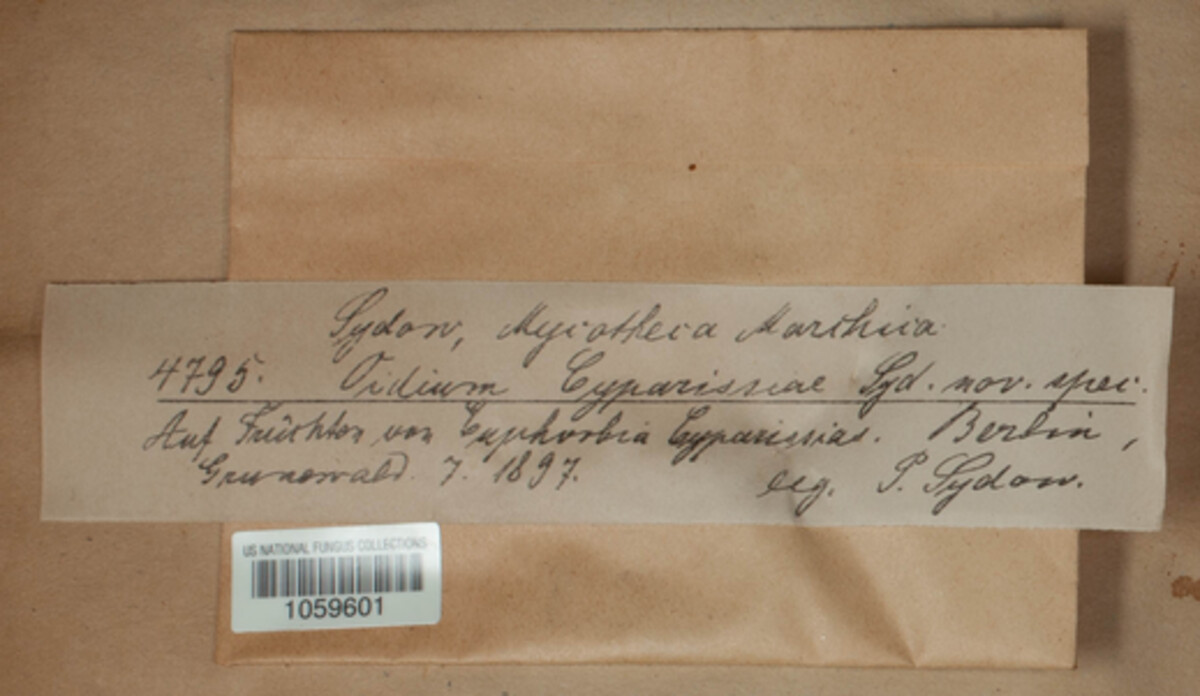 Sydow, Mycotheca Marchica
4795. Oidium Cyparissiae Syd. nov. spec.
Auf Früchten von Euphorbia Cyparissias. Berlin,
Grunewald. 7. 1897. leg. P. Sydow.
US NATIONAL FUNGUS COLLECTIONS
1059601